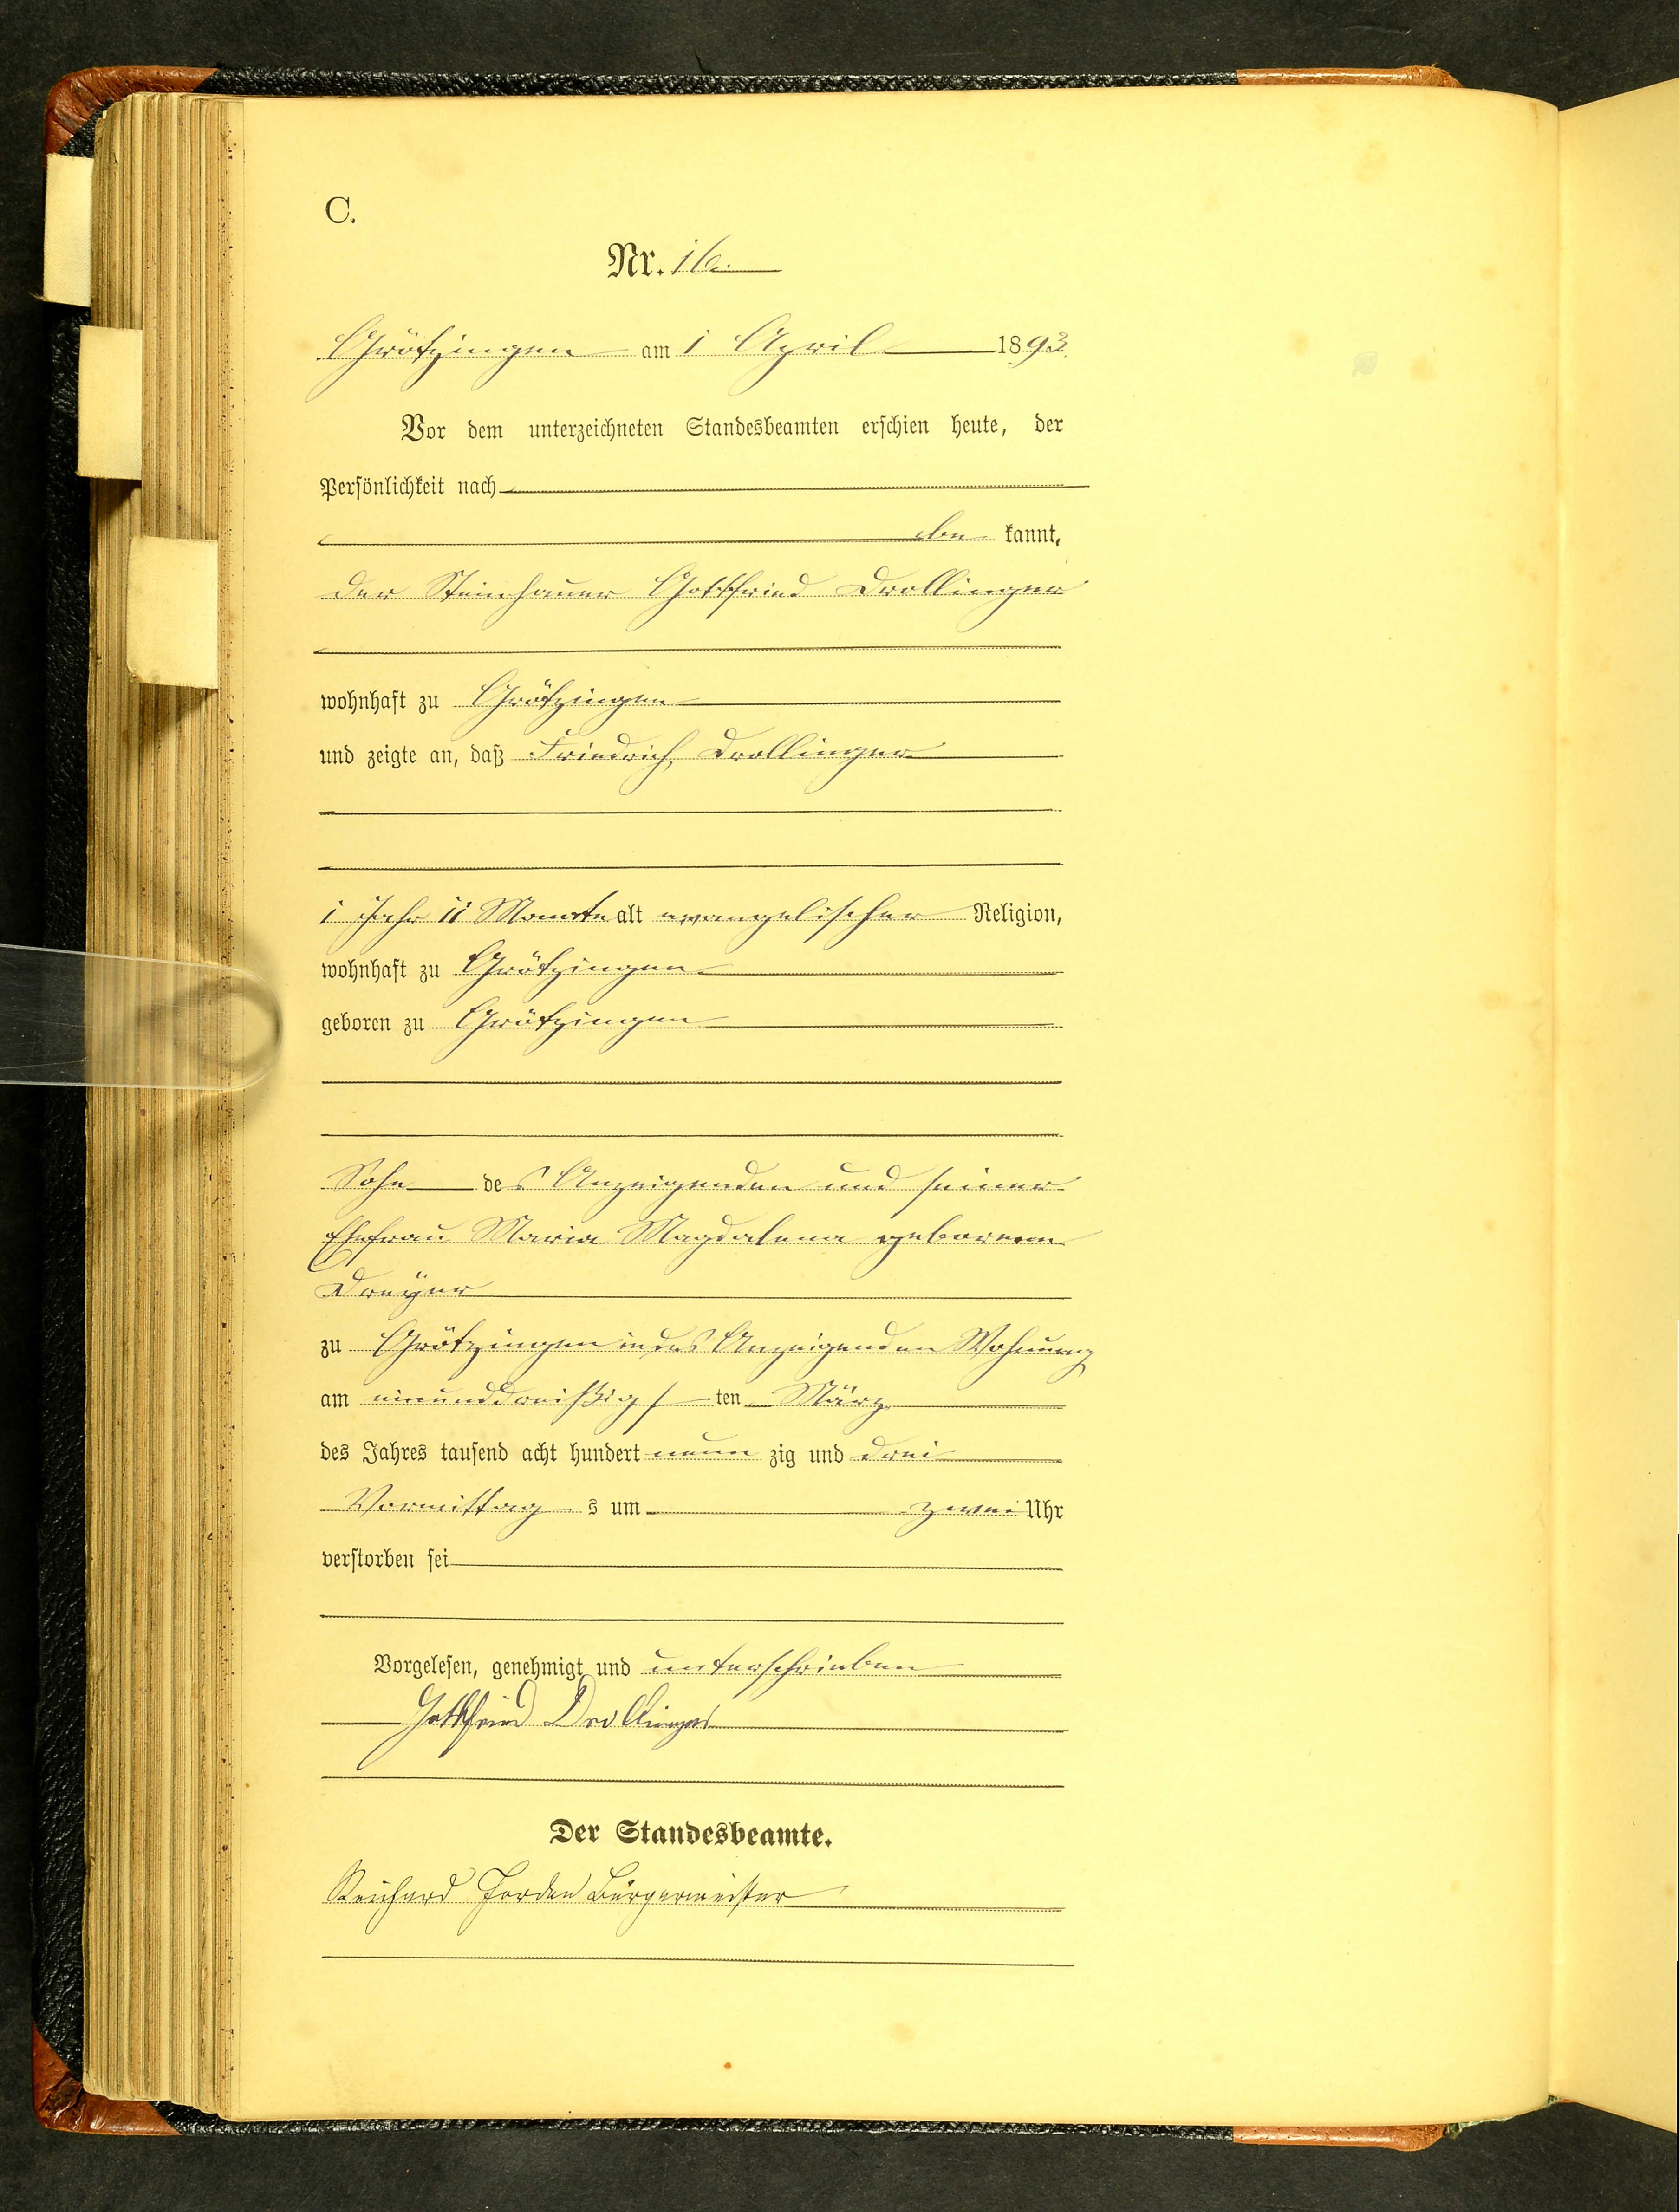 C.
Nr. 16.
Grötzingen am 1 April 1893.
Vor dem unterzeichneten Standesbeamten erschien heute, der
Persönlichkeit nach
be kannt,
der Steinhauer Gottfried Drollinger
wohnhaft zu Grötzingen
und zeigte an, daß Friedrich Drollinger
1 Jahr 11 Monate alt evangelischer Religion,
wohnhaft zu Grötzingen
geboren zu Grötzingen
Sohn des Anzeigenden und seiner
Ehefrau Maria Magdalena geborenen
Dreÿer
zu Grötzingen in des Anzeigenden Wohnung
am einunddreißigs ten März
des Jahres tausend acht hundert neun zig und drei
Vormittag s um zwei Uhr
verstorben sei
Vorgelesen, genehmigt und unterschrieben
Gottfried Drollinger
Der Standesbeamte.
Reichard Jordan Bürgermeister